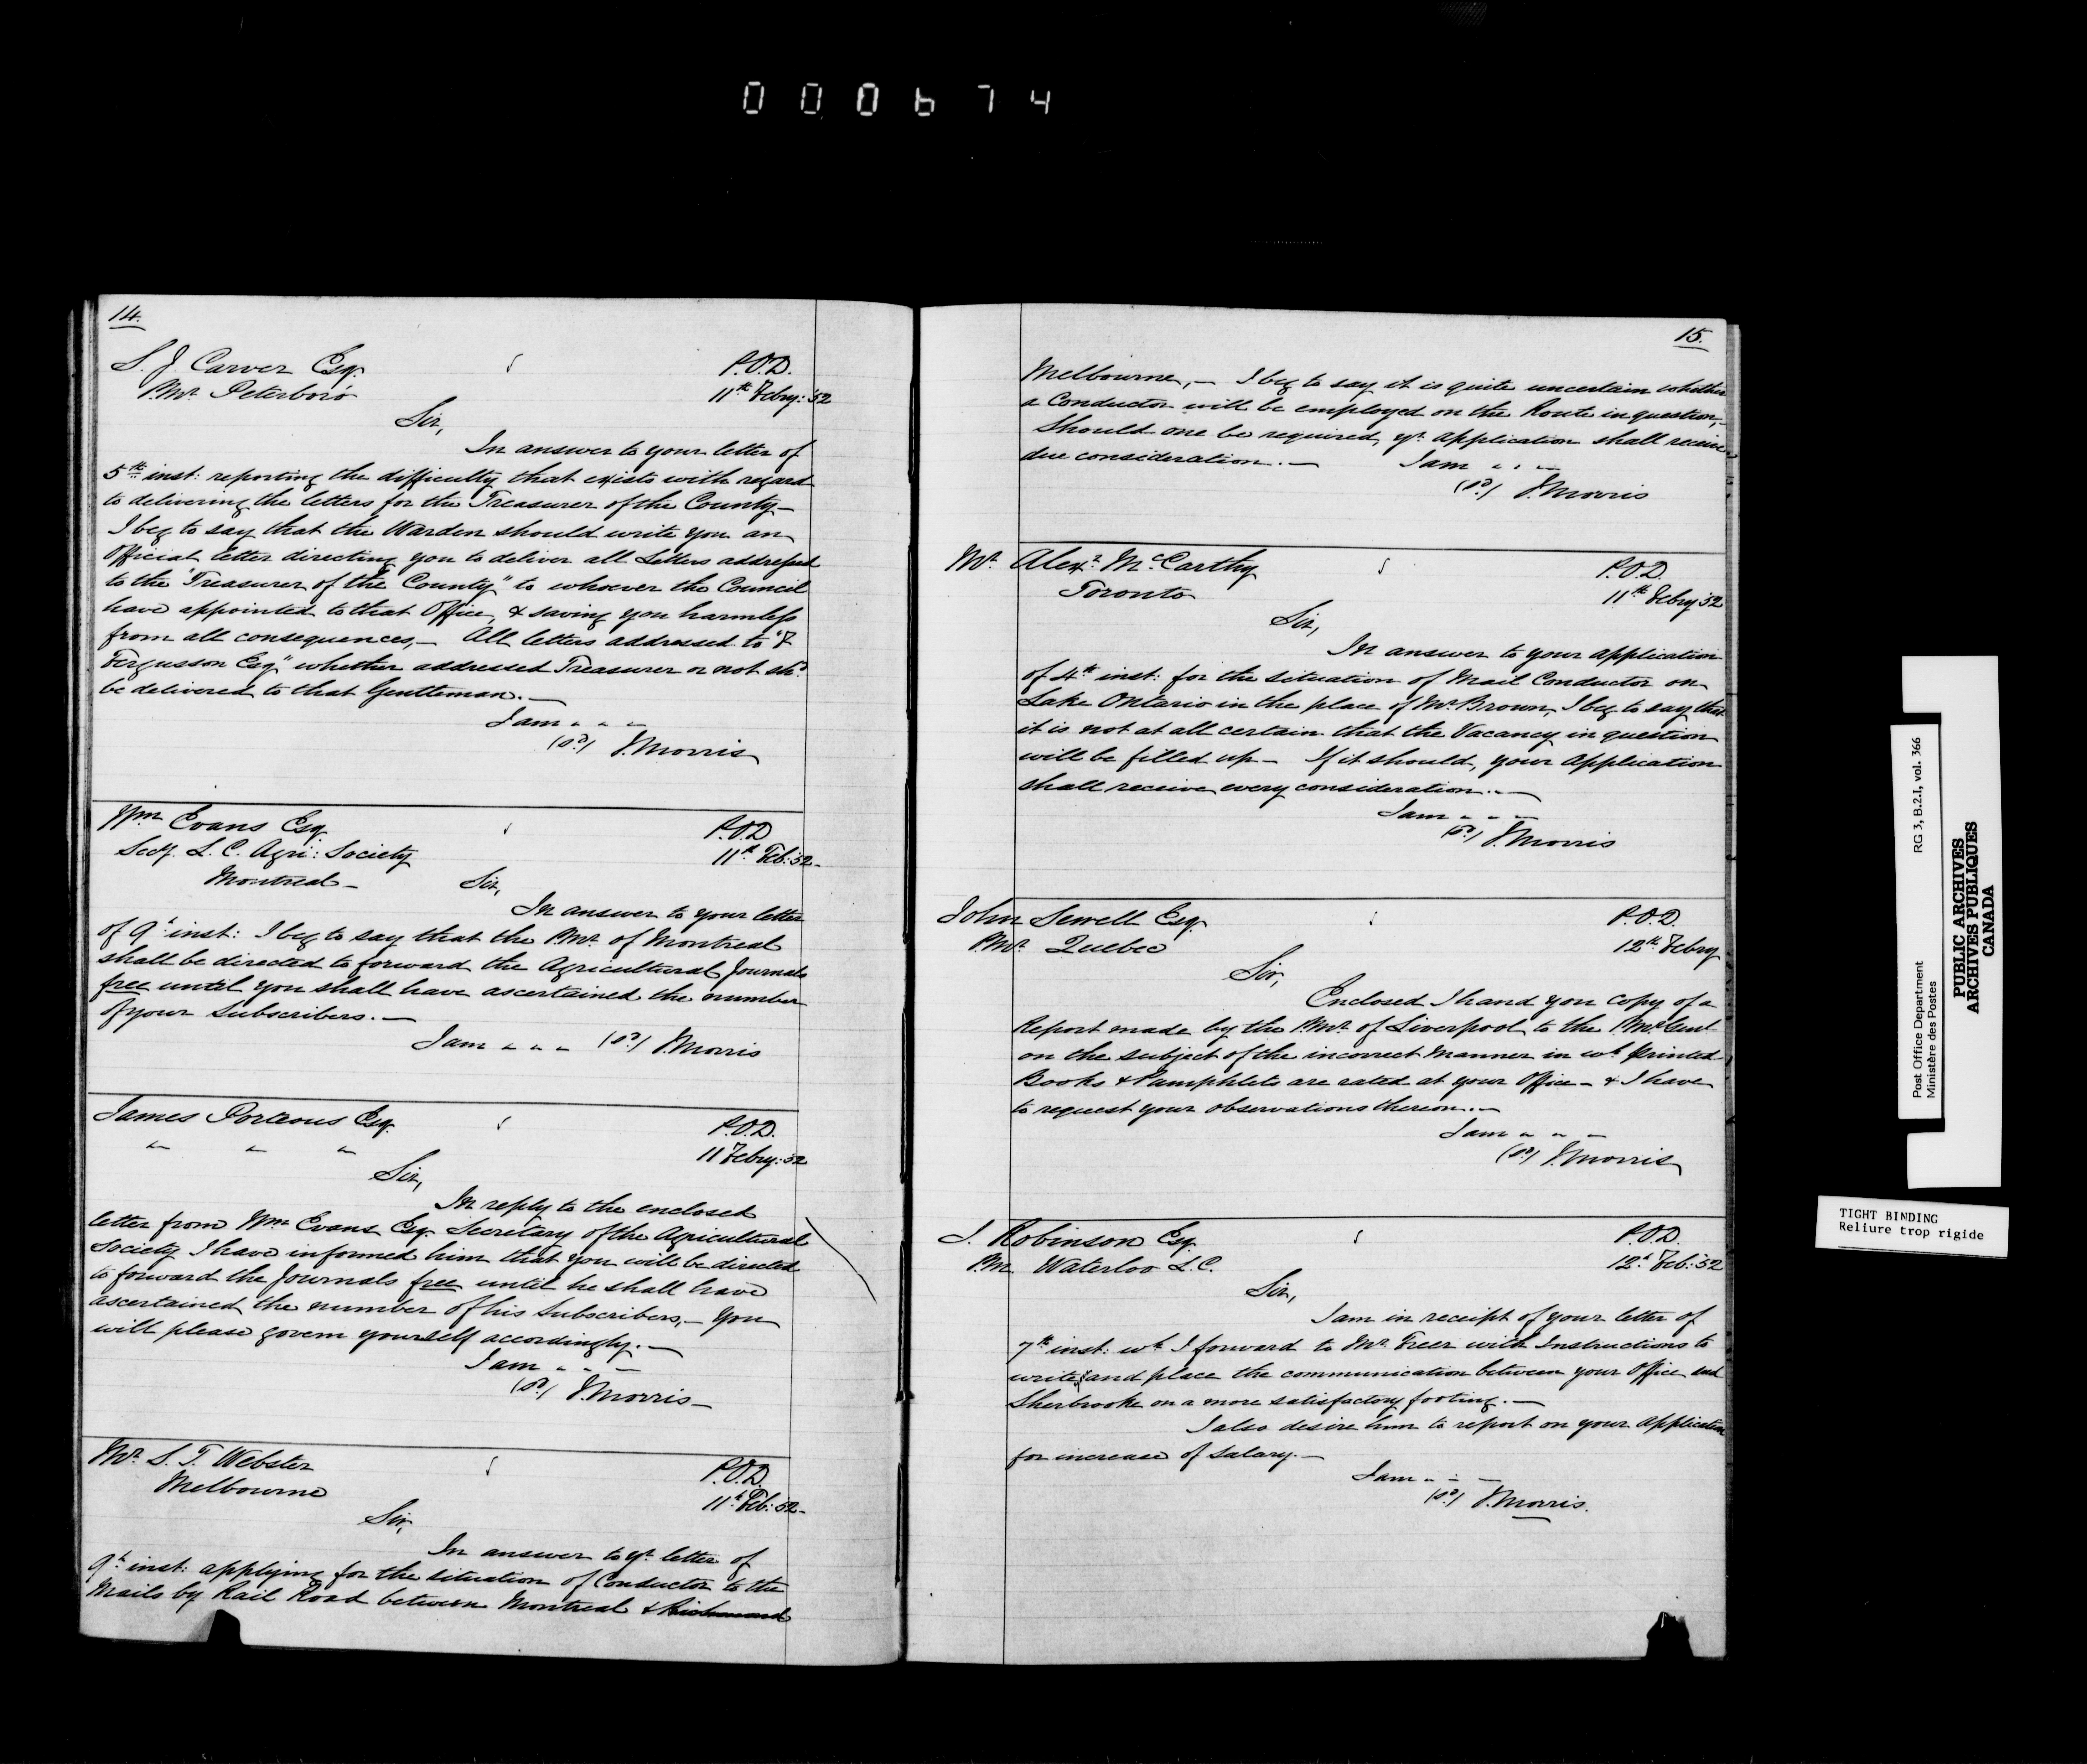 000674
14.
S. J. Carver Esq.
P.Mr. Peterboro'
P.O.D.
11th Febry: 52
Sir,
In answer to your letter of
5th inst: reporting the difficulty that exists with regard
to delivering the letters for the Treasurer of the County —
I beg to say that the Warden should write you an
Official letter directing you to deliver all Letters addressed
to the "Treasurer of the County" to whoever the Council
have appointed to that Office, & saving you harmless
from all consequences, — All letters addressed to "F
Fergusson Esq" whether addressed Treasurer or not shd.
be delivered to that Gentleman. —
I am " " "
(sd.) J. Morris
Wm Evans Esq
Secy. L. C. Agri: Society
Montreal —
P.O.D.
11th Feb: 52 -
Sir,
In answer to your letter
of 9th inst: I beg to say that the P.Mr. of Montreal
shall be directed to forward the Agricultural Journals
free until you shall have ascertained the number
of your Subscribers. —
I am " " " (sd.) J. Morris
James Porteous Esq.
" " "
P.O.D.
11 Febry: 52
Sir,
In reply to the enclosed
letter from Wm Evans Esq. Secretary of the Agricultural
Society I have informed him that you will be directed
to forward the Journals free until he shall have
ascertained the number of his Subscribers, — You
will please govern yourself accordingly. —
I am " " "
(sd.) J. Morris —
Mr. S. T. Webster
Melbourne
P.O.D.
11th Feb: 52 -
Sir,
In answer to yr. letter of
9th inst: applying for the situation of Conductor to the
Mails by Rail Road between Montreal & Richmond
15.
Melbourne, — I beg to say it is quite uncertain whether
a Conductor will be employed on the Route in question, —
Should one be required, yr. application shall receive
due consideration. — I am " " "
(sd.) J. Morris
Mr. Alexr. McCarthy
Toronto
P.O.D.
11th Febry 52
Sir,
In answer to your application
of 4th inst: for the situation of Mail Conductor on
Lake Ontario in the place of Mr. Brown, I beg to say that
it is not at all certain that the Vacancy in question
will be filled up — If it should, your Application
shall receive every consideration. —
I am " " "
(sd.) J. Morris
John Sewell Esq.
P.Mr. Quebec
P.O.D.
12th Febry
Sir,
Enclosed I hand you copy of a
Report made by the P.Mr. of Liverpool to the P.Mr. Genl
on the subject of the incorrect Manner in wh. Printed
Books & Pamphlets are rated at your Office — & I have
to request your observations thereon. —
I am " " "
(sd.) J. Morris
J. Robinson Esq.
P.M. Waterloo L. C.
P.O.D.
12th Feb: 52
Sir,
I am in receipt of your letter of
7th inst: wh. I forward to Mr. Freer with Instructions to
write and place the communication between your Office and
Sherbrooke on a more satisfactory footing. —
I also desire him to report on your Application
for increase of Salary. —
I am " " "
(sd.) J. Morris.
Post Office Department
Ministère des Postes
RG 3, B.2.I, vol. 366
PUBLIC ARCHIVES
ARCHIVES PUBLIQUES
CANADA
TIGHT BINDING
Reliure trop rigide